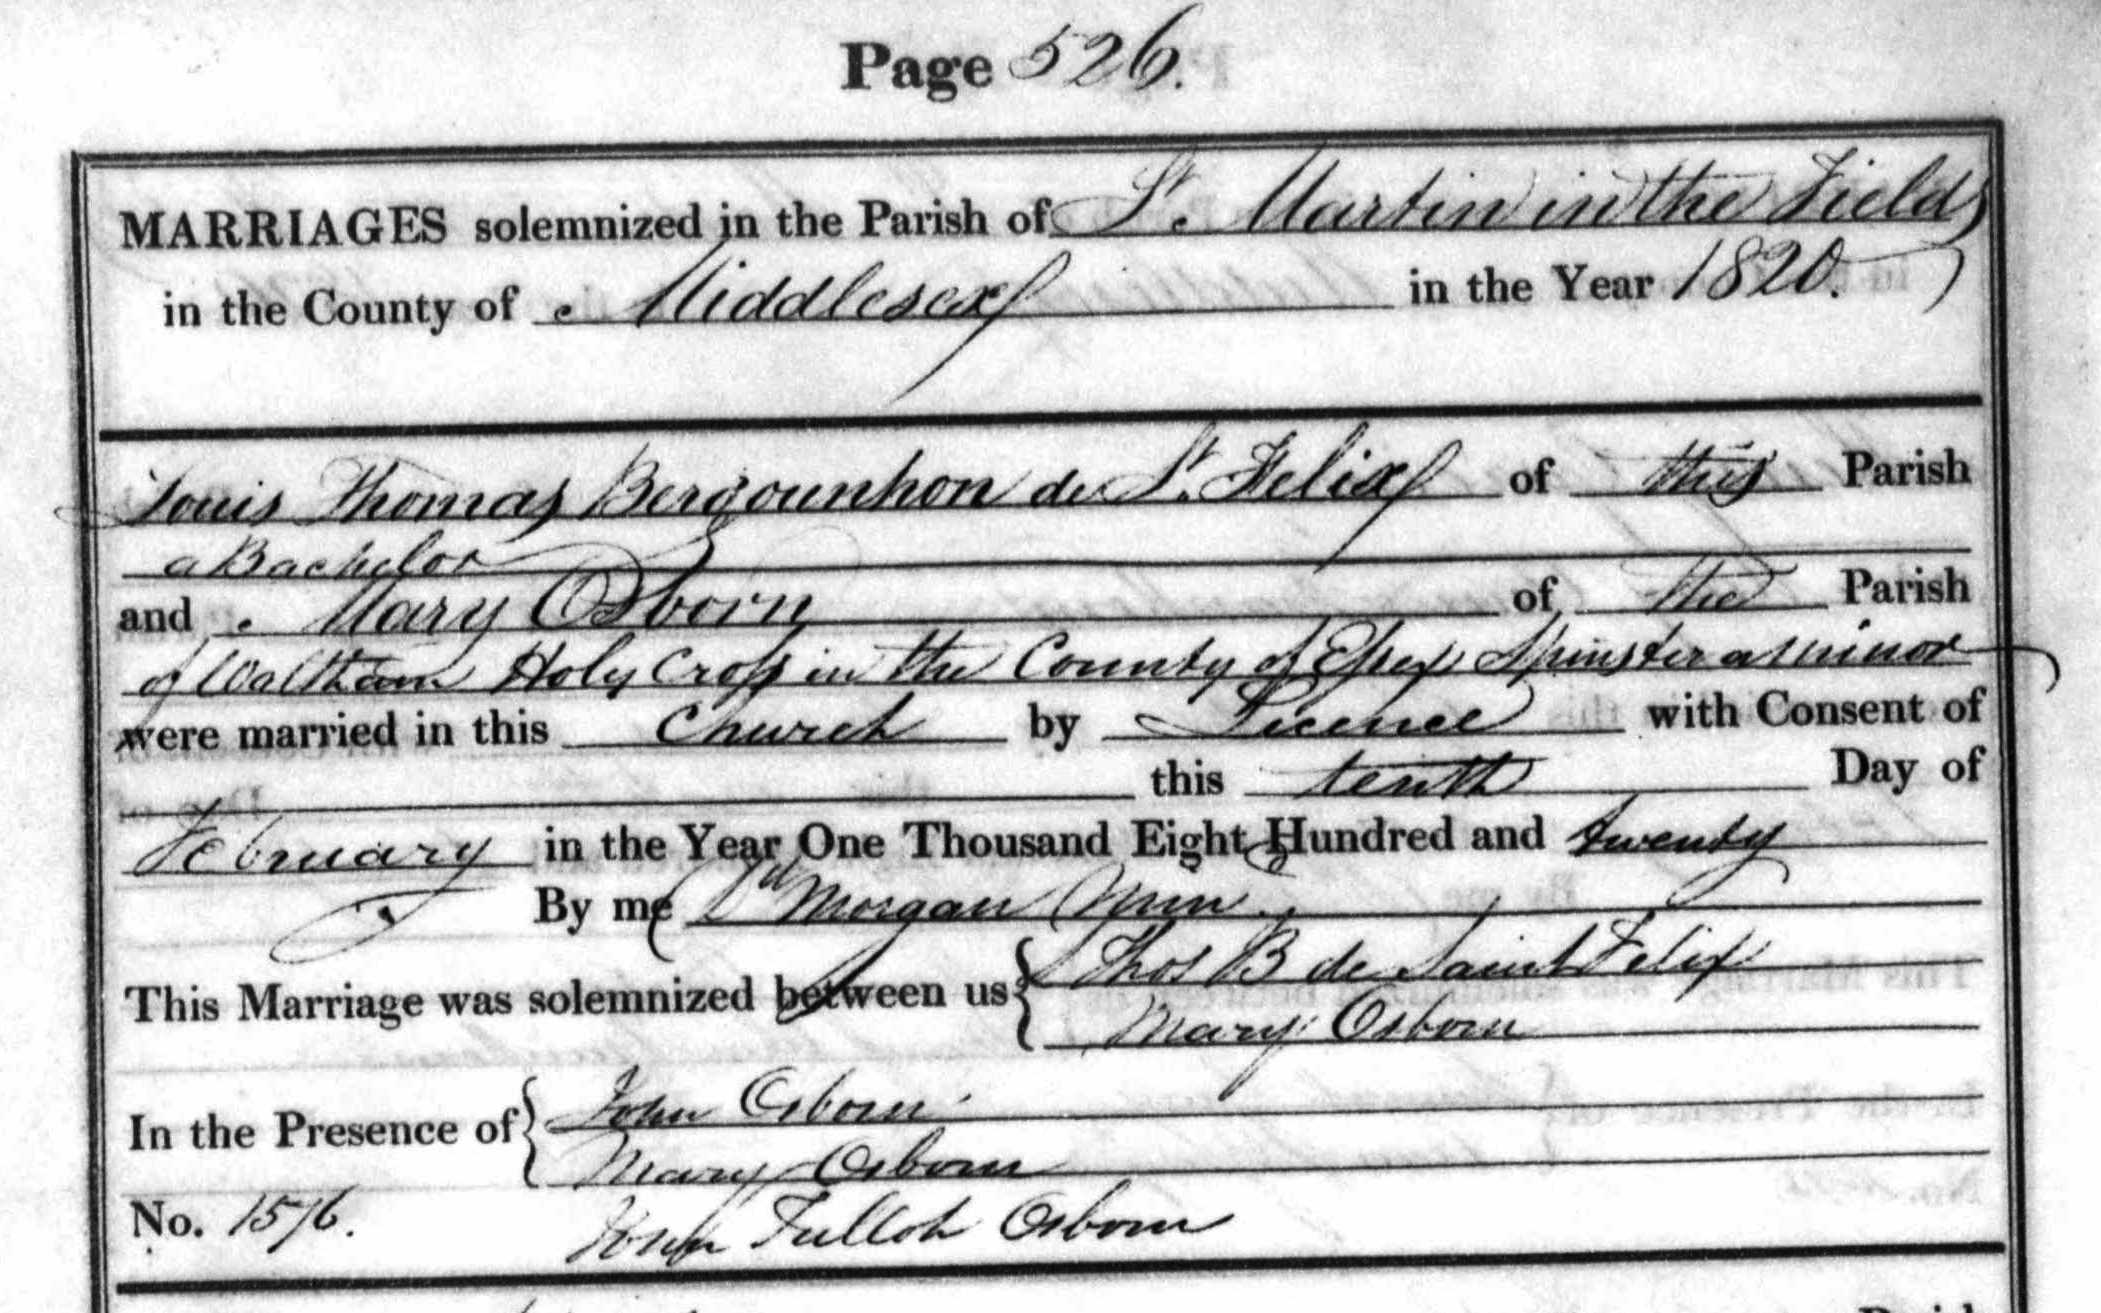 Page 526.
MARRIAGES solemnized in the Parish of St. Martin in the Fields
in the County of Middlesex in the Year 1820.
Louis Thomas Bergounhon de St. Felix of this Parish
a Bachelor
and Mary Osborn of the Parish
of Waltham Holy Cross in the County of Essex Spinster a minor
were married in this Church by Licence with Consent of
this tenth Day of
February in the Year One Thousand Eight Hundred and twenty
By me Morgan Min
This Marriage was solemnized between us { Thos B de Saint Felix
Mary Osborn
In the Presence of { John Osborn
Mary Osborn
No. 1576. Tulloh Osborn
Parish